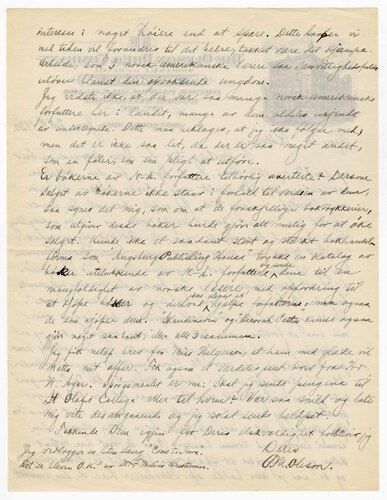 interesse i noget høiere end at spare. Dette haaper vi
med tiden vil forandres til det bedre, takket være det kjæmpe-
arbeide, som I norsk-amerikanske lærere saa samvittighedsfuldt
utøver blandt den opvoksende ungdom.
Jeg vidste ikke, at der var saa mange norsk-amerikanske
forfattere her i landet, mange av dem aldeles ukjendt
av undertegnede. Dette maa undskyldes, at jeg ikke følger med,
men det er ikke saa let, da der er saa meget andet,
som en føler, som sin pligt at utføre.
Er bøkerne av N.-A. forfattere tilbørlig averterte? Dersom
salget av bøkerne ikke staar i forhold til værdien av dem,
saa synes det mig, som om at de forskjellige boktrykkerier,
som utgiver disse bøker burde gjøre alt mulig for at øke
salget. Kunde ikke et saadant stort og sterkt bokhandler-
firma som "Augsburg Publishing House" trykke en katalog av
bøker utelukkende av N.-A. forfattere og sende dem til en
mangfoldighet av norske læsere, med opfordring til
at kjøpe bøker og derved ikke alene at hjælpe forfatterne, men ogsaa
de som kjøper dem. "Skandinaven" og "Decorah Posten" kunde ogsaa
gjøre noget saadant, eller alle 3 isammen.
Jeg fik netop brev fra Miss Helgerson, at hun med glæde vil
motta mit offer. Fik ogsaa et særdeles pent brev fra
N. Ager. Spørgsmaalet er nu: Skal jeg sende pengene til
St Olafs College eller til hende? Vær saa snild og late
mig vite desangaaende og jeg skal sende beløpet.
Takkende Dem igjen for Deres elskværdighet forbliver jeg
Deres
O. M. Oleson.